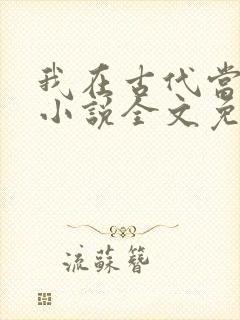 我在古代当
小说全文免
流蘇簪